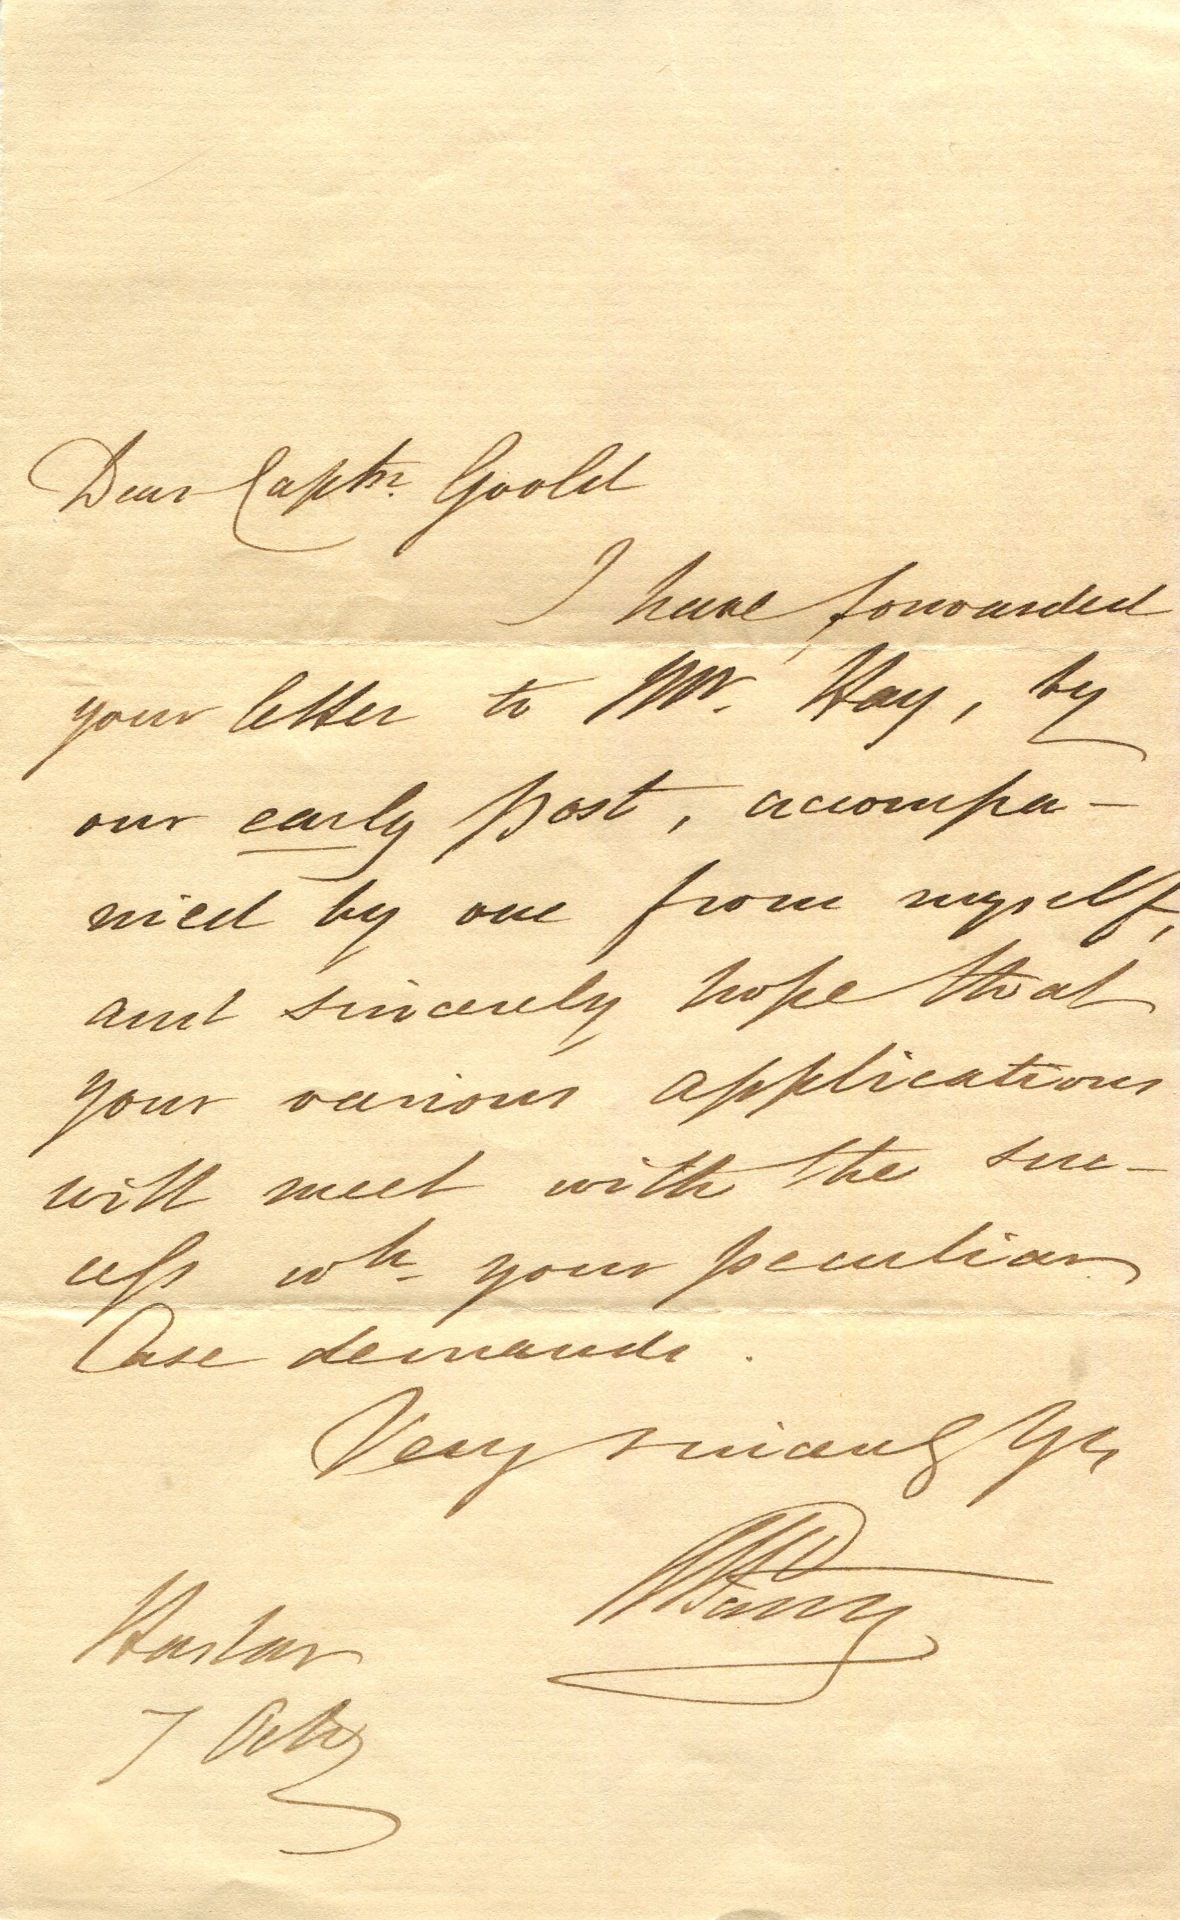 Dear Captn. Goold
I have forwarded
your letter to Mr. Hay, by
our early post, accompa-
nied by one from myself,
and sincerely hope that
your various applications
will meet with the suc-
cess wh. your peculiar
Case demands.
Very sincerely Yrs
WEParry
Haslar
7 Octr